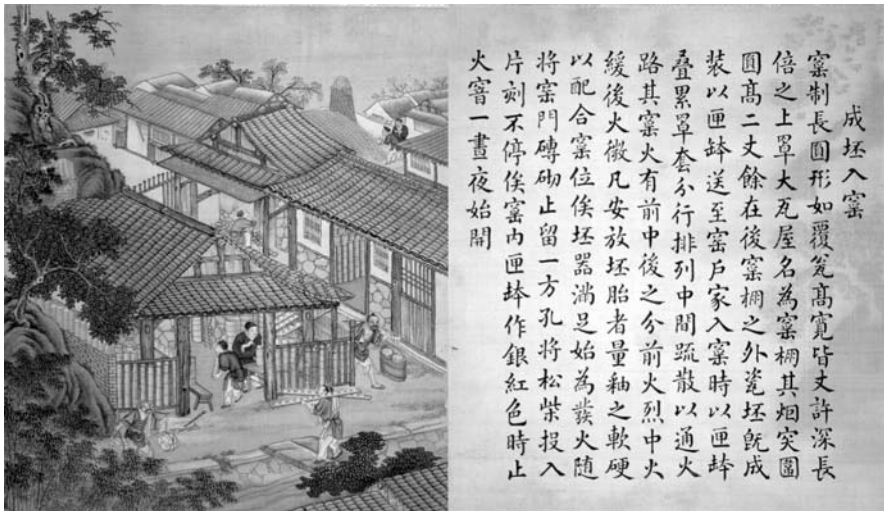 成坯入窯
窯制長圓形如覆瓮高寬皆丈許深長
倍之上罩大瓦屋名為窯棚其烟突圍
圓高二丈餘在後窯棚之外瓷坯既成
装以匣缽送至窯戶家入窯時以匣缽
叠累罩套分行排列中間疏散以通火
路其窯火有前中後之分前火烈中火
緩後火微凡安放坯胎者量釉之軟硬
以配合窯位俟坯器滿足始為發火隨
將窯門磚砌止留一方孔將松柴投入
片刻不停俟窯内匣缽作銀紅色時止
火窨一晝夜始開